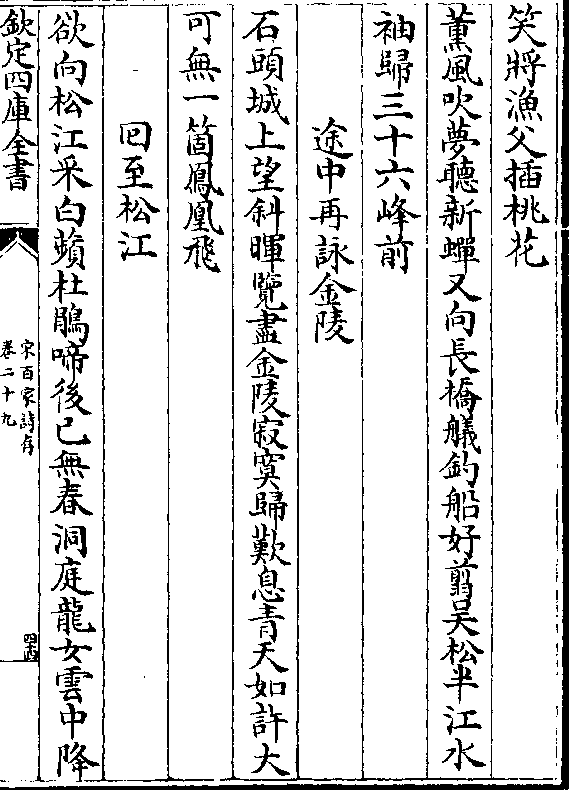 笑將漁父插桃花
薰風吹夢聽新蟬又向長橋艤釣船好翦吴松半江水
袖歸三十六峰前
途中再詠金陵
石頭城上望斜暉覽盡金陵寂寞歸歎息青天如許大
可無一箇鳳凰飛
囘至松江
欲向松江采白蘋杜鵑啼後已無春洞庭龍女雲中降
欽定四庫全書
宋百家詩存
卷二十九
四十四